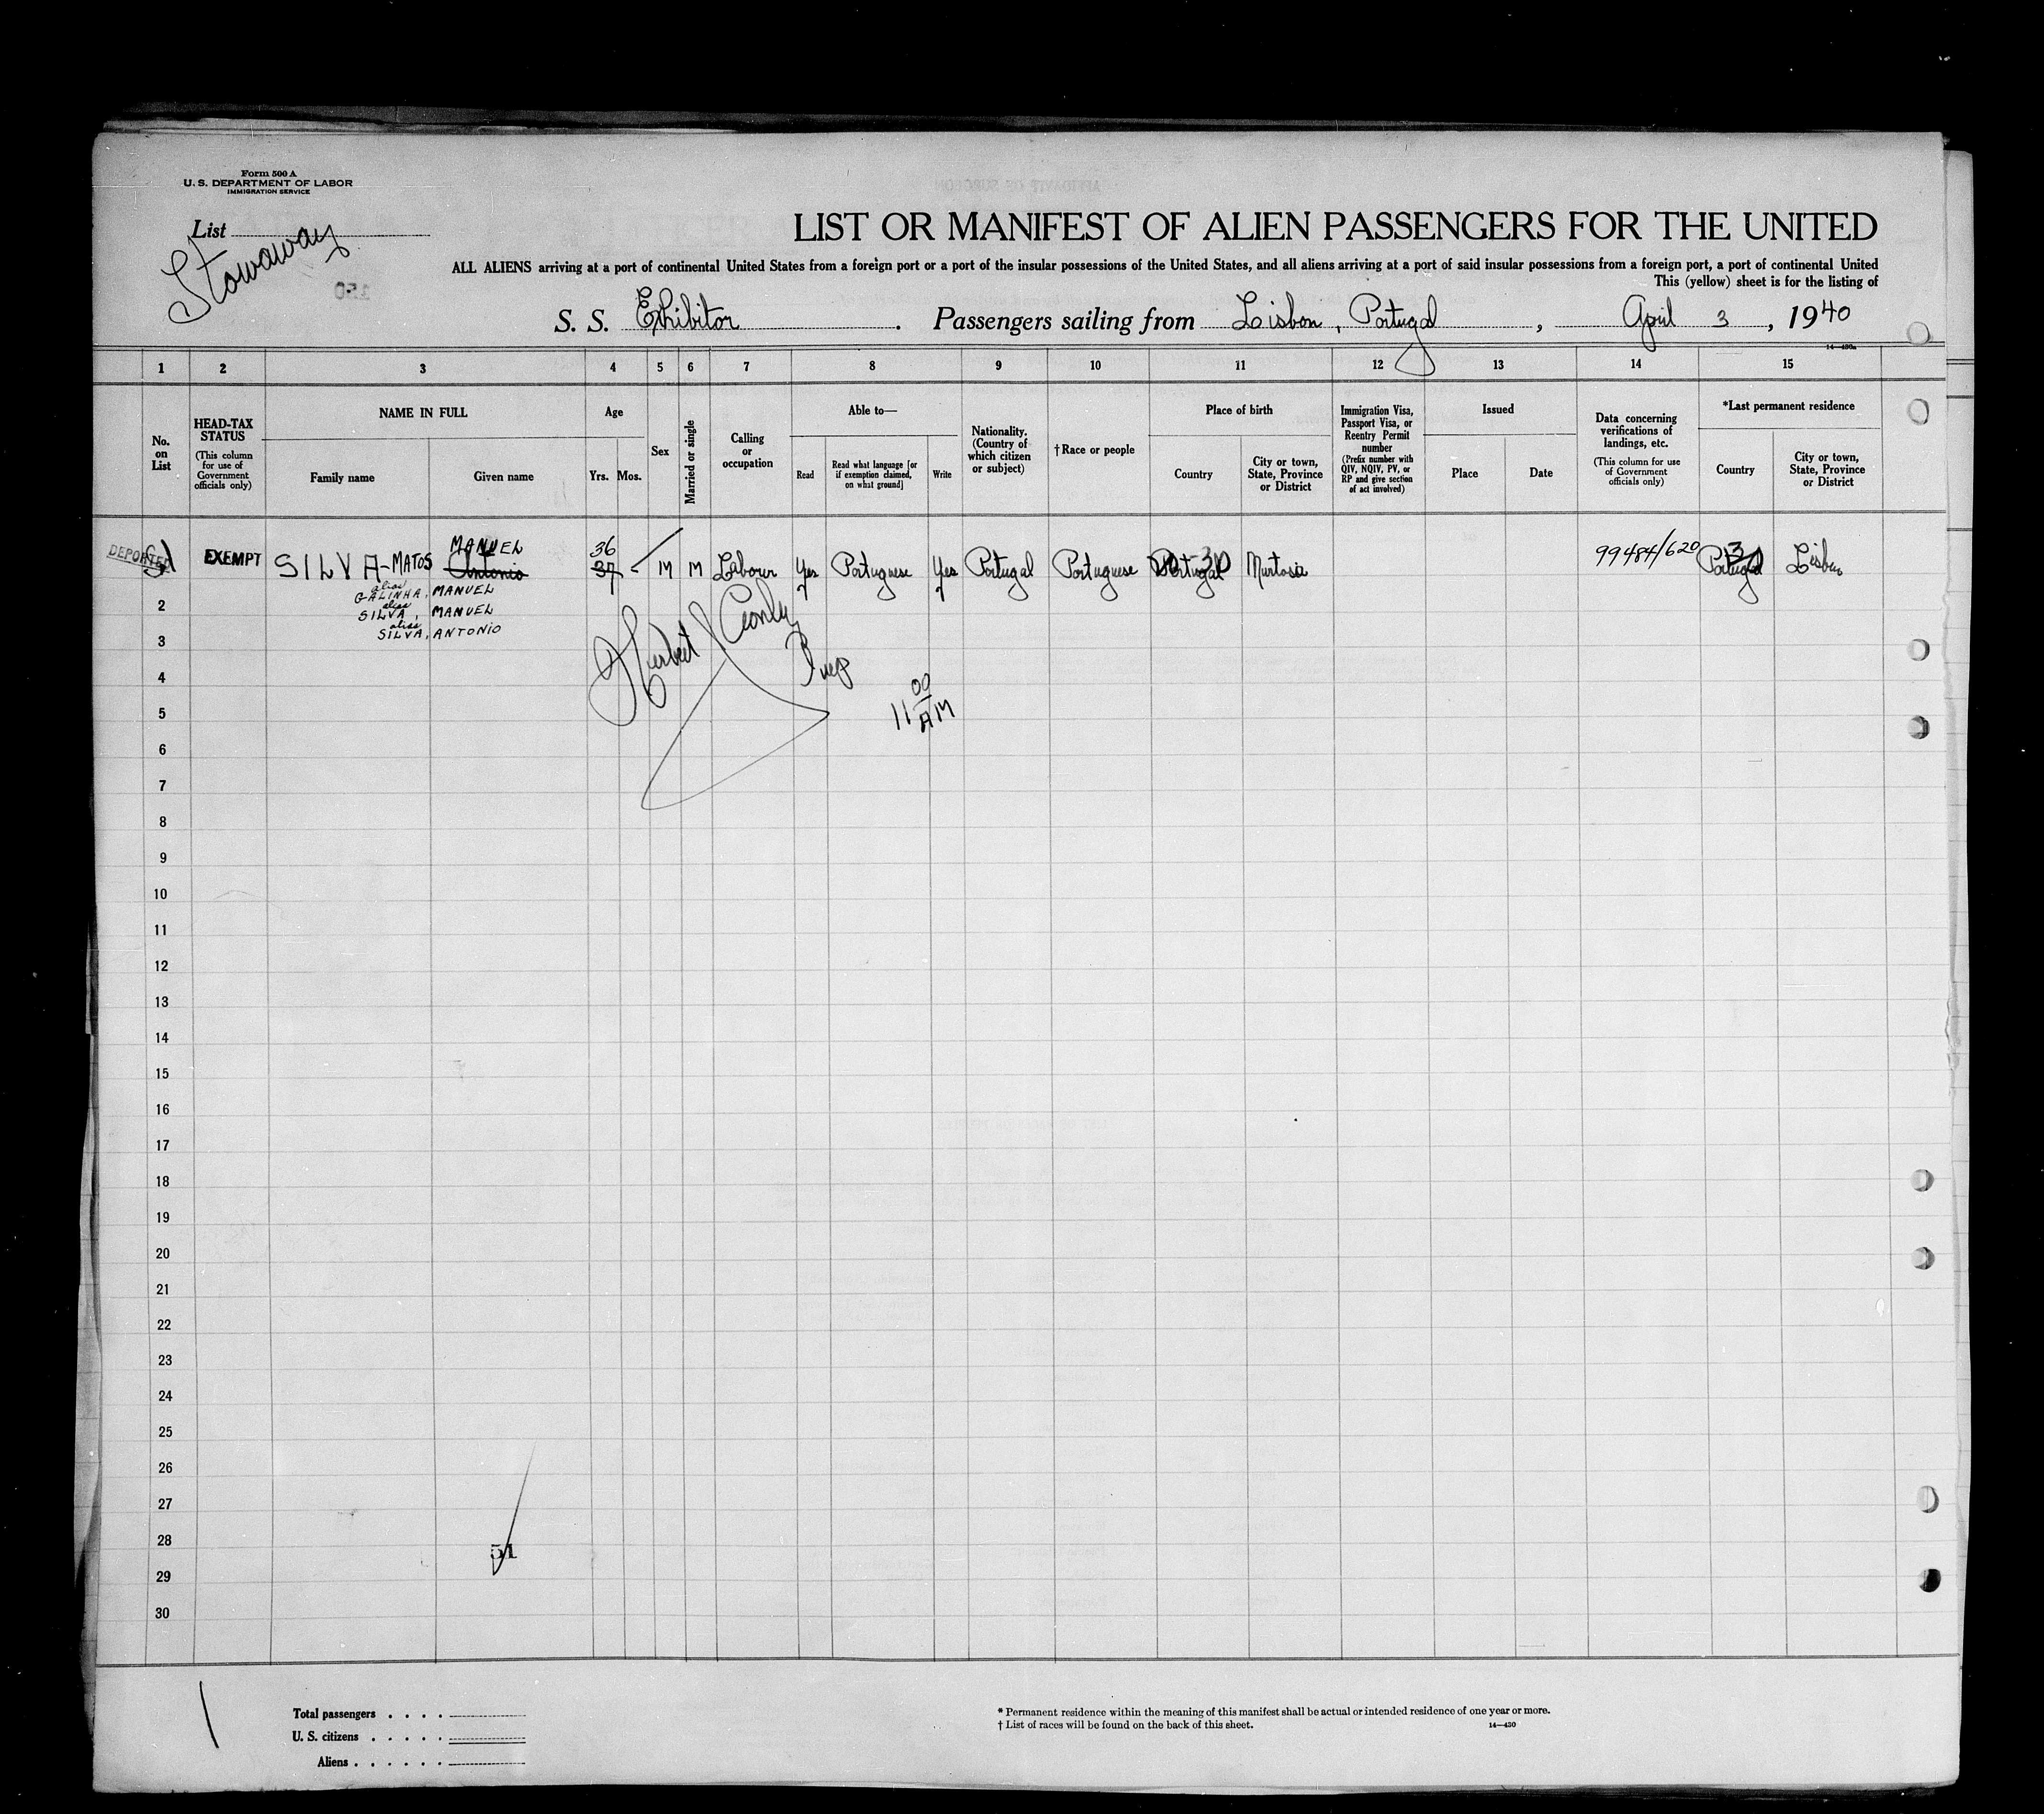 Form 500 A
U. S. DEPARTMENT OF LABOR
IMMIGRATION SERVICE
List
Stowaway
150
LIST OR MANIFEST OF ALIEN PASSENGERS FOR THE UNITED
ALL ALIENS arriving at a port of continental United States from a foreign port or a port of the insular possessions of the United States, and all aliens arriving at a port of said insular possessions from a foreign port, a port of continental United
This (yellow) sheet is for the listing of
S. S. Exhibitor . Passengers sailing from Lisbon, Portugal , April 3 , 1940
14—430a
1 2 3 4 5 6 7 8 9 10 11 12 13 14 15
No. on List
HEAD-TAX STATUS
(This column for use of Government officials only)
NAME IN FULL
Family name
Given name
Age
Yrs. Mos.
Sex
Married or single
Calling or occupation
Able to—
Read
Read what language [or if exemption claimed, on what ground]
Write
Nationality. (Country of which citizen or subject)
† Race or people
Place of birth
Country
City or town, State, Province or District
Immigration Visa, Passport Visa, or Reentry Permit number
(Prefix number with QIV, NQIV, PV, or RP and give section of act involved)
Issued
Place
Date
Data concerning verifications of landings, etc.
(This column for use of Government officials only)
*Last permanent residence
Country
City or town, State, Province or District
MANUEL 36
DEPORTED EXEMPT SILVA-MATOS Antonio 37 - M M Labour Yes Portuguese Yes Portugal Portuguese Portugal Murtosa 99484/620 Portugal Lisbon
alias
GALINHA, MANUEL
alias
SILVA, MANUEL
alias
SILVA, ANTONIO
Herbert
Insp
11 00 AM
2
3
4
5
6
7
8
9
10
11
12
13
14
15
16
17
18
19
20
21
22
23
24
25
26
27
28
51
29
30
Total passengers . . . .
U. S. citizens . . . . .
Aliens . . . . . .
* Permanent residence within the meaning of this manifest shall be actual or intended residence of one year or more.
† List of races will be found on the back of this sheet.
14—430